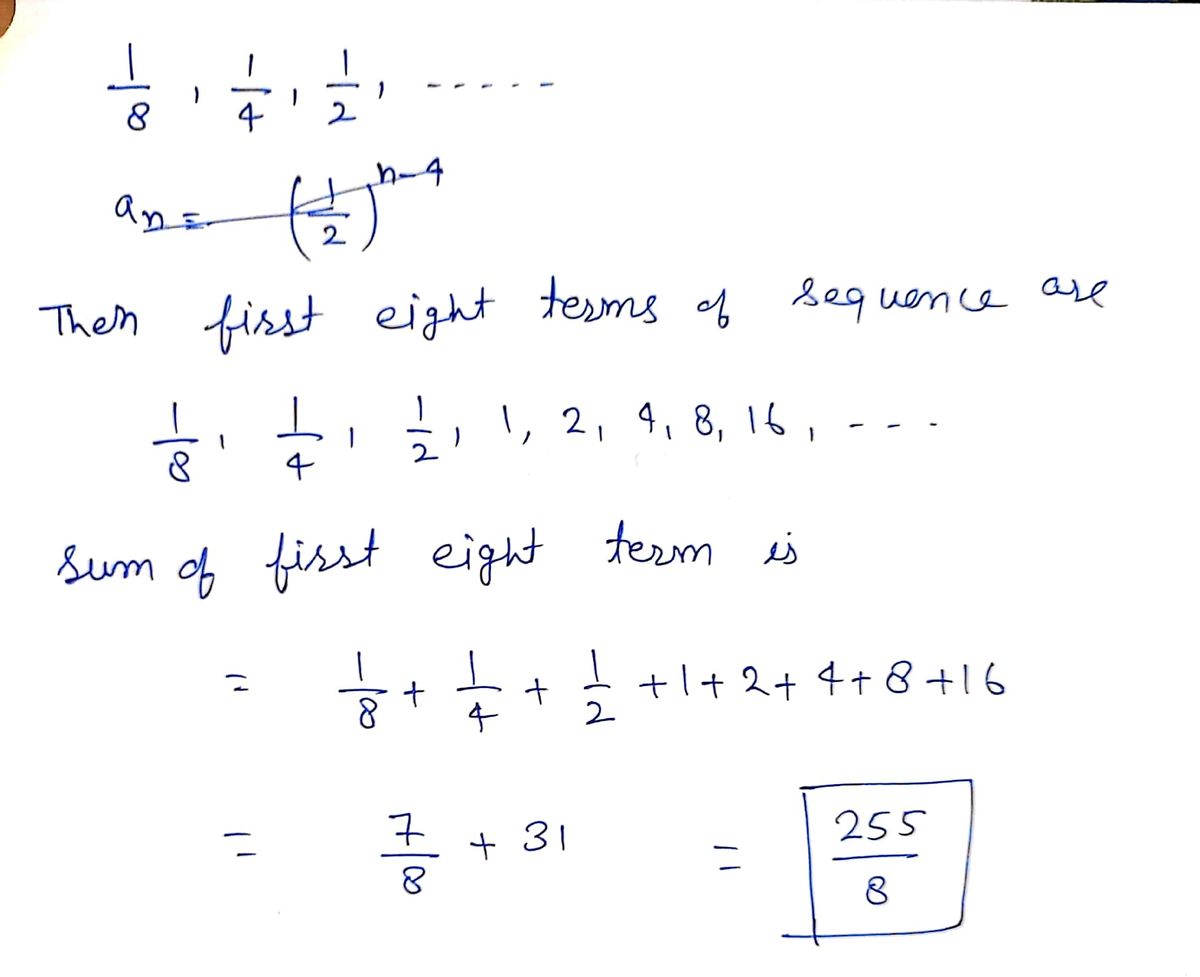 1/8, 1/4, 1/2, -----
an = (1/2)^n-4
Then first eight terms of sequence are
1/8, 1/4, 1/2, 1, 2, 4, 8, 16, ---
sum of first eight term is
= 1/8 + 1/4 + 1/2 + 1 + 2 + 4 + 8 + 16
= 7/8 + 31 = 255/8